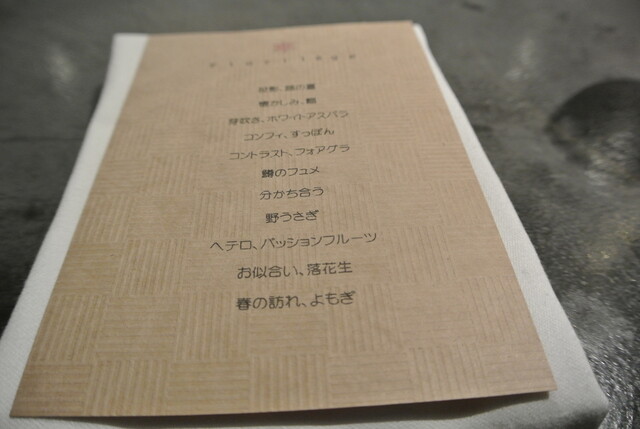 Florilège
懐かしみ、
芽吹き、ホワイトアスパラ
コンフィ、すっぽん
コントラスト、フォアグラ
鱒のフュメ
分かち合う
野うさぎ
ヘテロ、パッションフルーツ
お似合い、落花生
春の訪れ、よもぎ